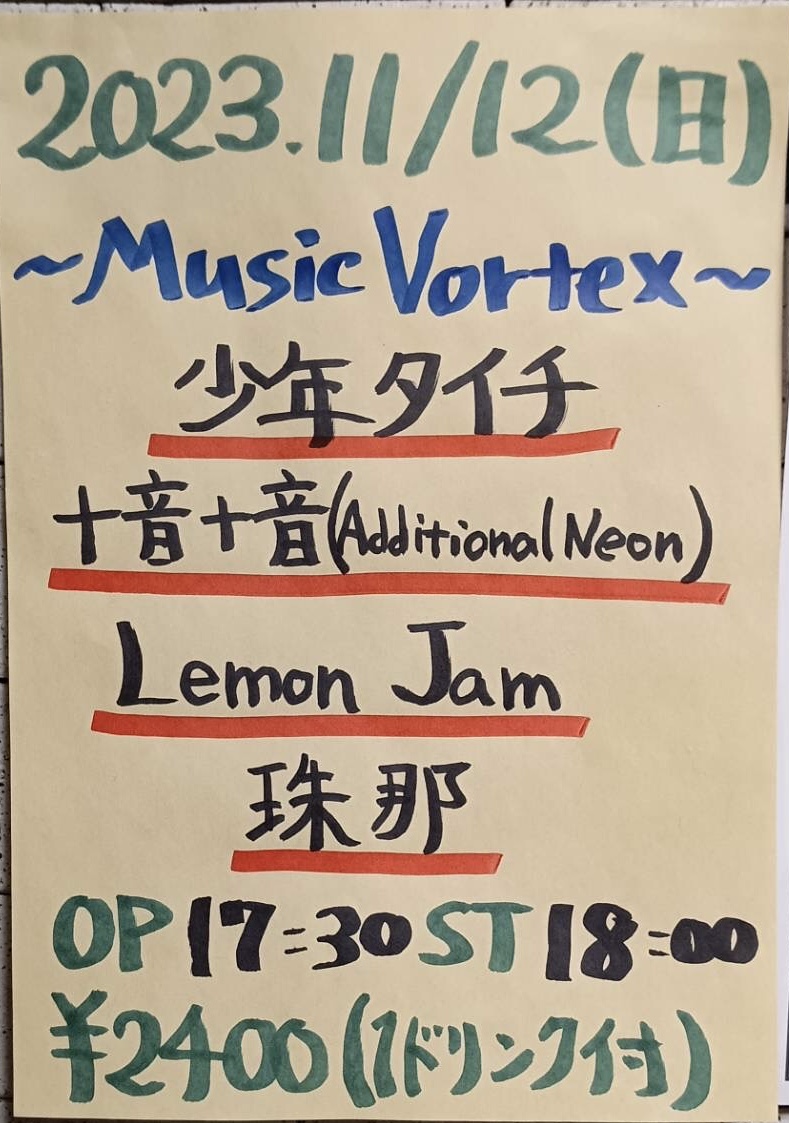 2023.11/12(日)
~Music Vortex~
少年タイチ
十音十音(Additional Neon)
Lemon Jam
珠那
OP17:30 ST18:00
¥2400(1ドリンク付)